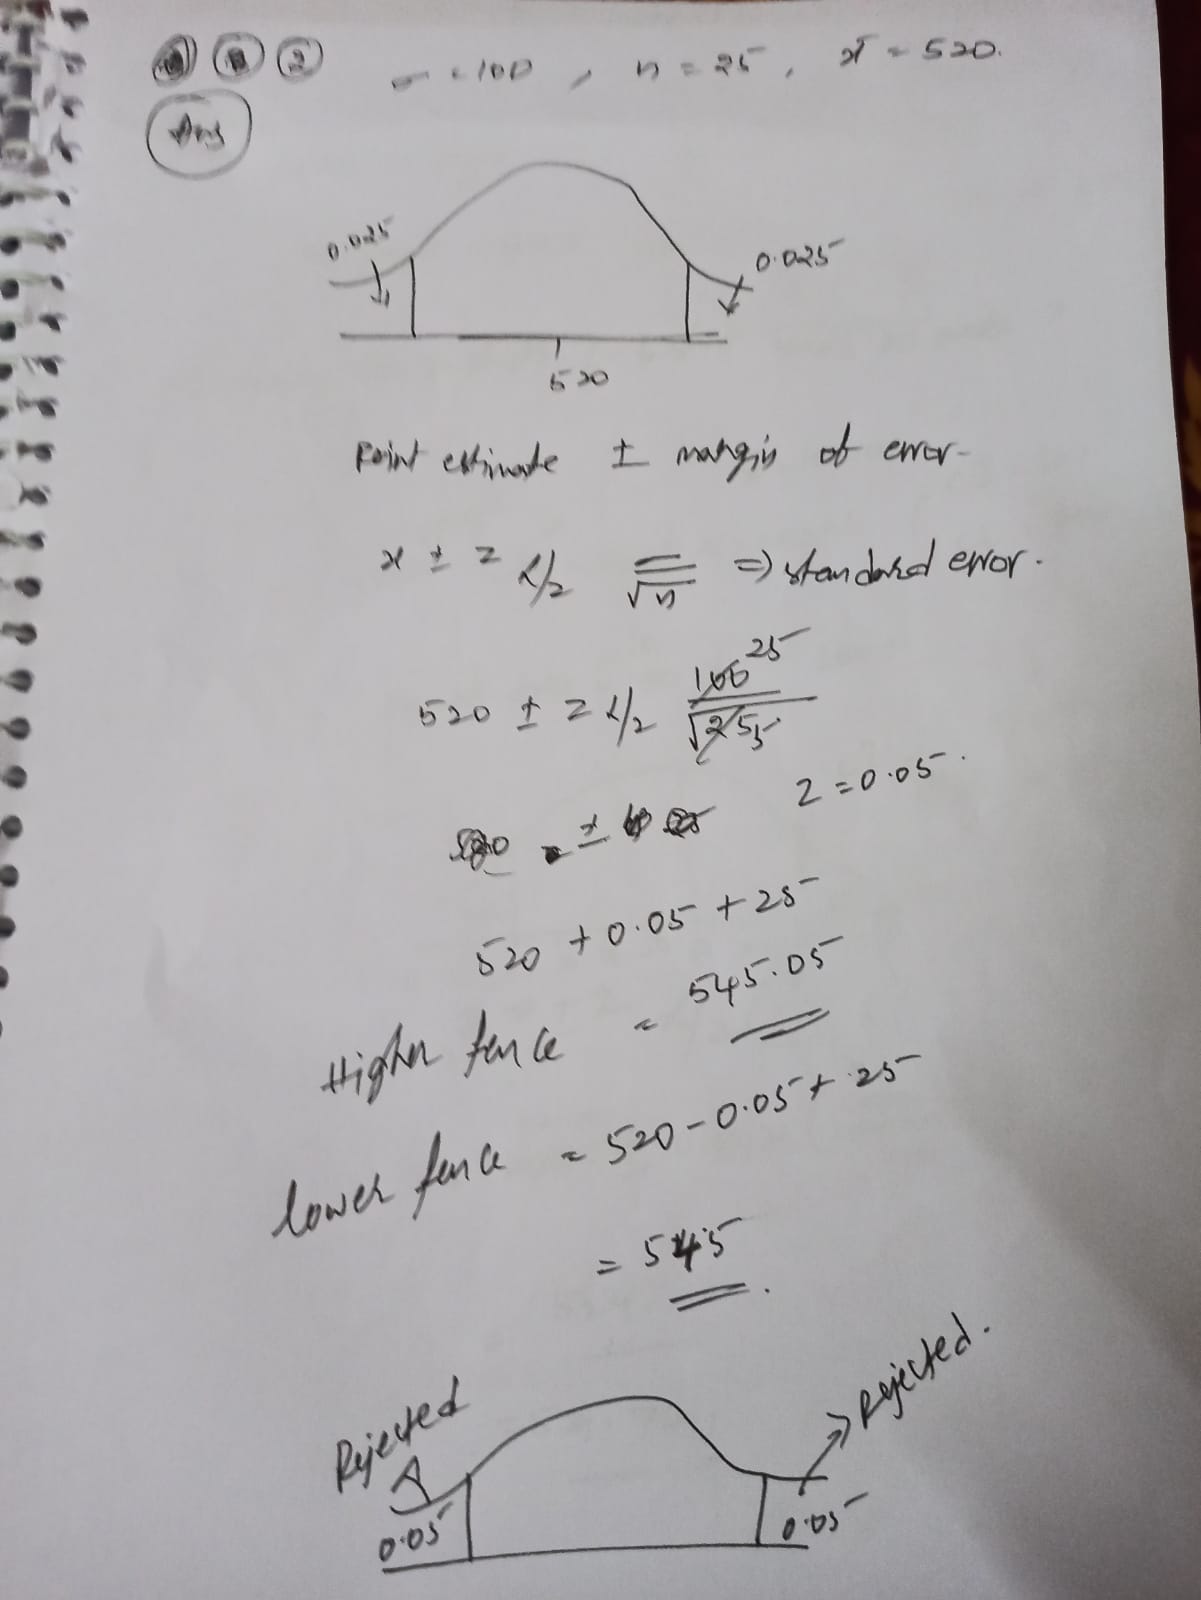 ② σ = 100 , n = 25 , x̄ = 520.
Ans
0.025
0.025
520
Point estimate ± margin of error-
x ± z α/2 σ/√n => standard error.
520 ± z α/2 100/√25 25 5
Z = 0.05.
±
520 + 0.05 + 25
Higher fence = 545.05
lower fence = 520 - 0.05 + 25
= 545.
Rejected
Rejected.
0.05
0.05